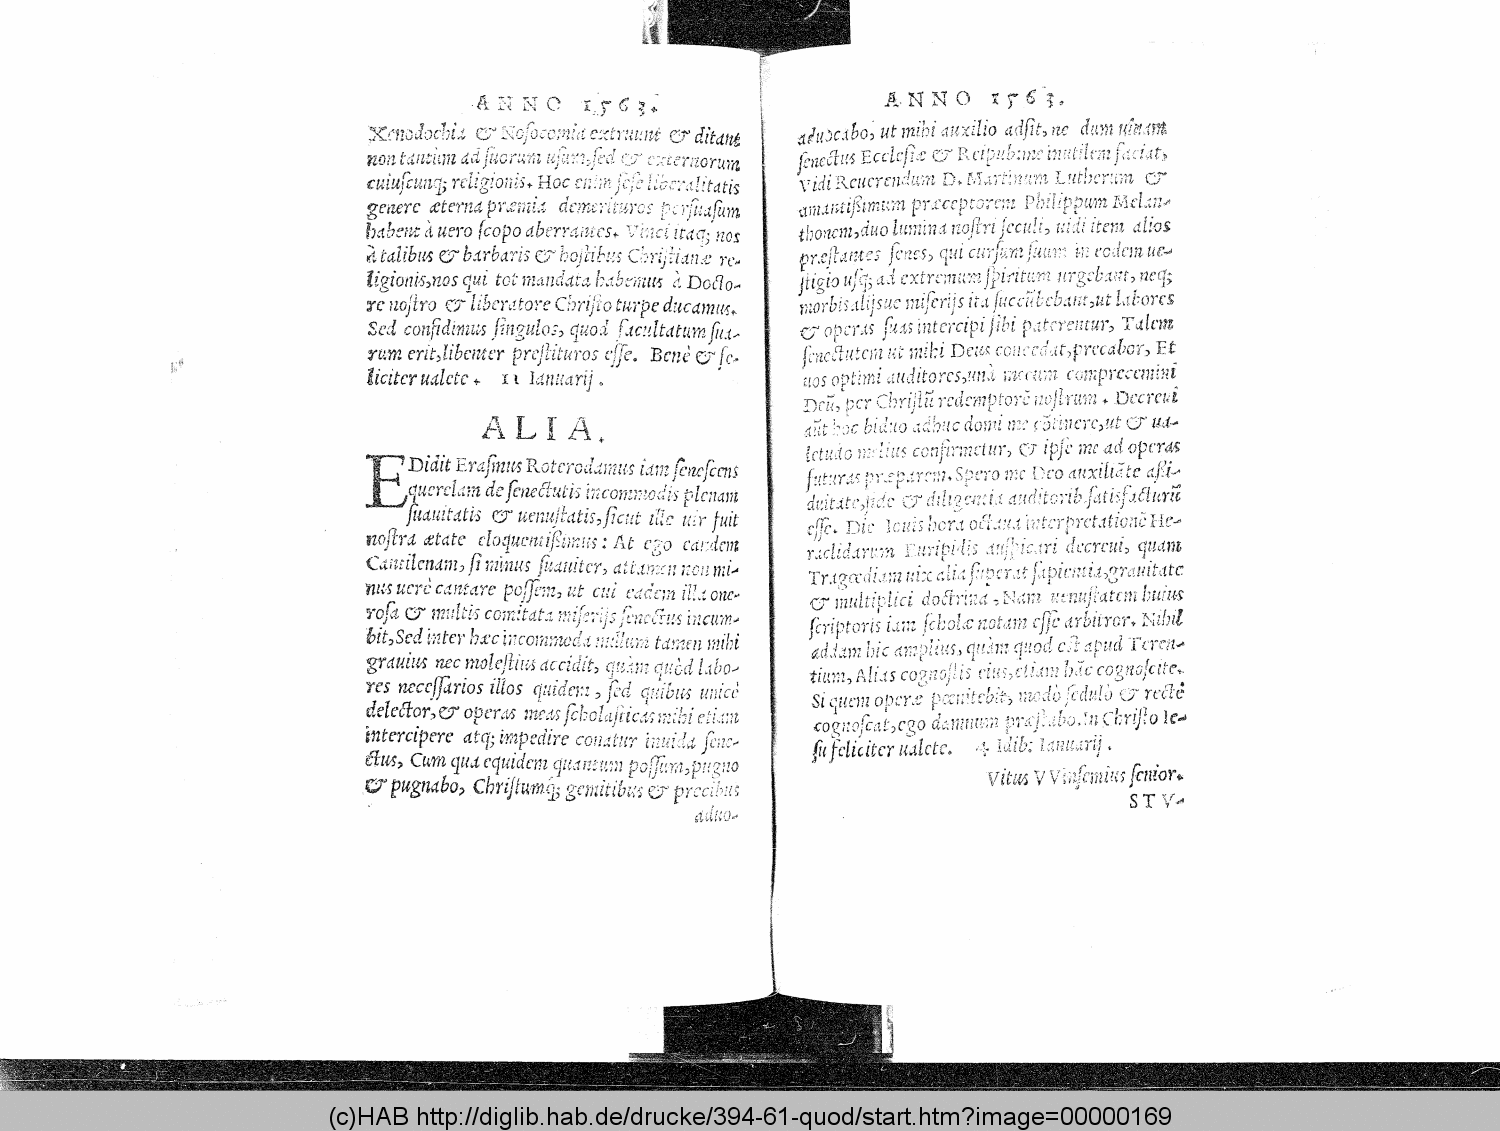 ANNO 1563.
Xenodochia & Nosocomia extruunt & ditant
non tantùm ad suorum usum, sed & externorum
cuiuscunq; religionis. Hoc enim sese liberalitatis
genere æterna præmia demerituros persuasum
habent à uero scopo aberrantes. Vinci itaq; nos
à talibus & barbaris & hostibus Christianæ re-
ligionis, nos qui tot mandata habemus à Docto-
re nostro & liberatore Christo turpe ducamus.
Sed confidimus singulos, quod facultatum sua-
rum erit, libenter prestituros esse. Benè & fe-
liciter ualete. 11 Ianuarij.
ALIA.
EDidit Erasmus Roterodamus iam senescens
querelam de senectutis incommodis plenam
suauitatis & uenustatis, sicut ille uir fuit
nostra ætate eloquentißimus: At ego eandem
Cantilenam, si minus suauiter, attamen non mi-
nus uerè cantare possem, ut cui eadem illa one-
rosa & multis comitata miserijs senectus incum-
bit, Sed inter hæc incommoda nullum tamen mihi
grauius nec molestius accidit, quàm quòd labo-
res necessarios illos quidem, sed quibus unicè
delector, & operas meas scholasticas mihi etiam
intercipere atq; impedire conatur inuida sene-
ctus, Cum qua equidem quantum possum, pugno
& pugnabo, Christumq; gemitibus & precibus
aduo-
ANNO 1563.
aduocabo, ut mihi auxilio adsit, ne dum uiuam
senectus Ecclesiæ & Reipub: me inutilem faciat,
Vidi Reuerendum D. Martinum Lutherum &
amantißimum præceptorem Philippum Melan-
thonem, duo lumina nostri seculi, uidi item alios
præstantes senes, qui cursum suum in eodem ue-
stigio usq; ad extremum spiritum urgebant, neq;
morbis alijsue miserijs ita succūbebant, ut labores
& operas suas intercipi sibi paterentur, Talem
senectutem ut mihi Deus concedat, precabor, Et
uos optimi auditores, unà mecum comprecemini
Deū, per Christū redemptorē nostrum. Decreui
aūt hoc biduo adhuc domi me cōtinere, ut & ua-
letudo melius confirmetur, & ipse me ad operas
futuras præparem. Spero me Deo auxiliāte aßi-
duitate, fide & diligentia auditorib. satisfacturū
esse. Die Iouis hora octaua interpretationē He-
raclidarum Euripidis auspicari decreui, quam
Tragœdiam uix alia superat sapientia, grauitate
& multiplici doctrina, Nam uenustatem huius
scriptoris iam scholæ notam esse arbitror. Nihil
addam hic amplius, quàm quod est apud Teren-
tium, Alias cognostis eius, etiam hāc cognoscite.
Si quem operæ pœnitebit, modò sedulò & rectè
cognoscat, ego damnum præstabo. In Christo Ie-
su feliciter ualete. 4 Idib: Ianuarij.
Vitus VVinsemius senior.
STV-
(c)HAB http://diglib.hab.de/drucke/394-61-quod/start.htm?image=00000169